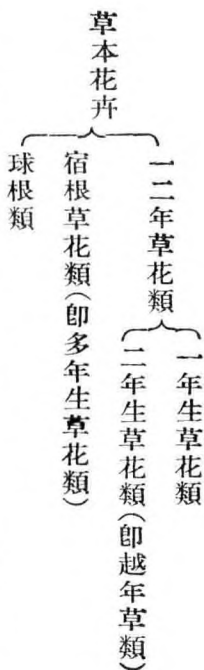 草本花卉
一二年草花類
一年生草花類
二年生草花類(卽越年草類)
宿根草花類(卽多年生草花類)
球根類